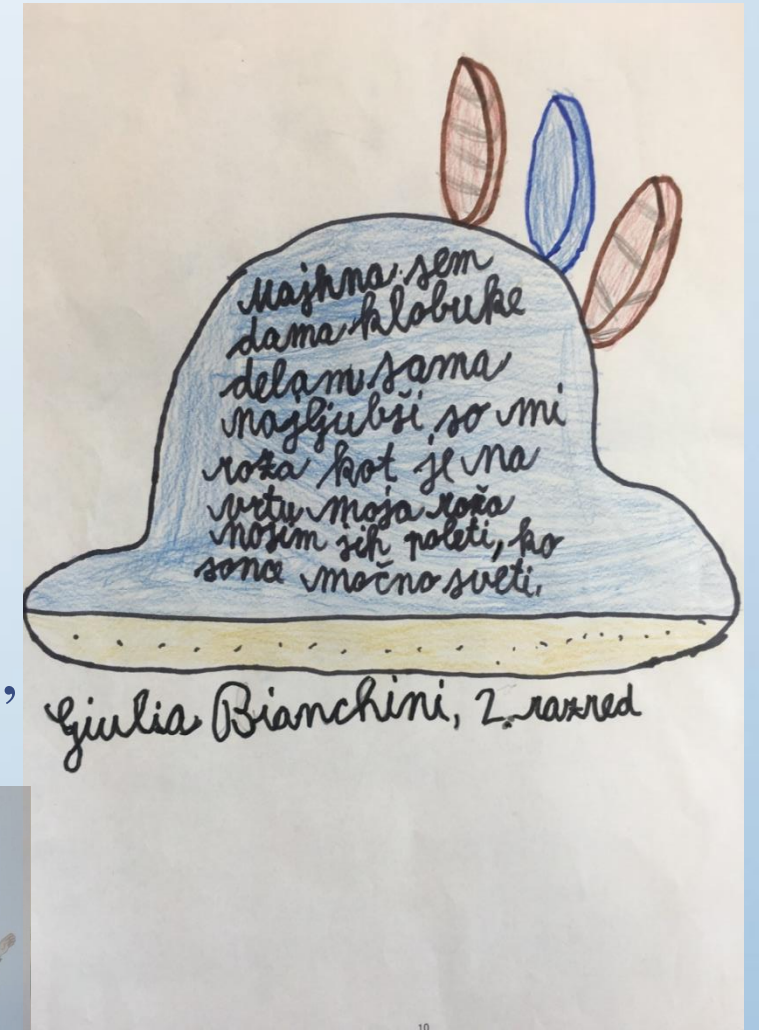 Majhna sem
dama klobuke
delam sama
najljubši so mi
roža kot je na
vrtu moja roža
nosim jih poleti, ko
sonce močno sveti.
Giulia Bianchini, 2. razred
,
10